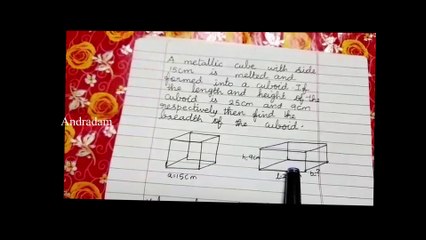 A metallic cube with side
15cm is melted and
formed into a cuboid. If
the length and height of the
cuboid is 25cm and 9cm
respectively then find the
breadth of the cuboid.
Andradam
h.9cm
a=15cm
b=?